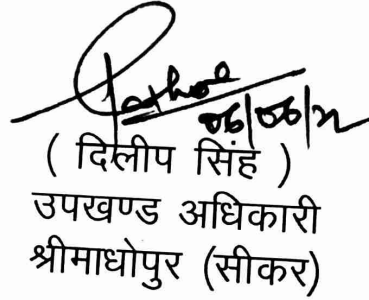 06/06/22
( दिलीप सिंह )
उपखण्ड अधिकारी
श्रीमाधोपुर (सीकर)